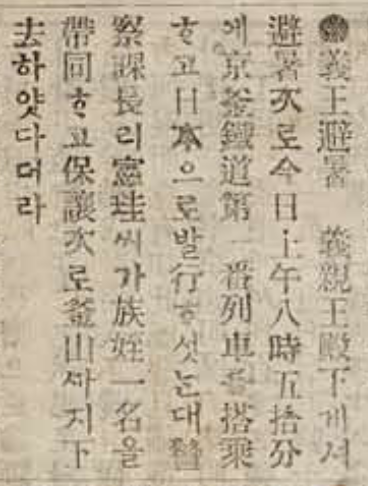 義王避暑 義親王殿下게셔
避暑次로今日上午八時五拾分
에京釜鐵道第一番列車를搭乘
ᄒᆞ고日本으로발行ᄒᆞ싯ᄂᆞᆫ대警
察課長리憲珪씨가族姪一名을
帶同ᄒᆞ고保護次로釜山ᄭᅡ지下
去하얏다더라